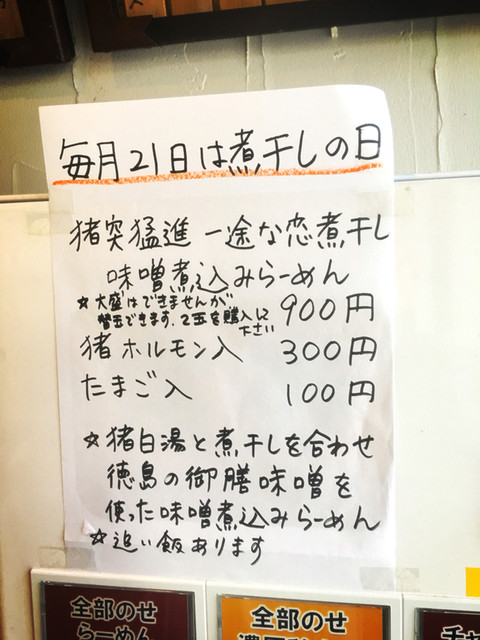 毎月21日は煮干しの日
猪突猛進 一途な恋煮干し
味噌煮込みらーめん
900円
☆大盛はできませんが
替玉できます。2玉を購入に
下さい
猪ホルモン入 300円
たまご入 100円
☆猪白湯と煮干しを合わせ
徳島の御膳味噌を
使った味噌煮込みらーめん
☆追い飯あります
全部のせ
らーめん
全部のせ
チャ